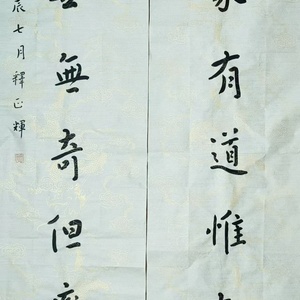 家有道惟
無奇但
辰七月釋正輝